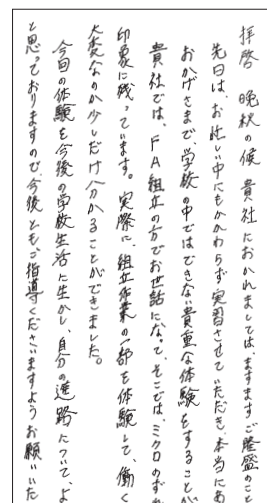 拝啓　晩秋の候　貴社におかれましては、ますますご隆盛のこと
先日は、お忙しい中にもかかわらず実習させていただき、本当にあ
おかげさまで、学校の中ではできない貴重な体験をすることが
貴社では、FA組立の方でお世話になって、そこではミクロのずれ
印象に残っています。実際に、組立作業の一部を体験して、働く
大変なのか少しだけ分かることができました。
今回の体験を今後の学校生活に生かし、自分の進路について、よ
と思っておりますので今後ともご指導くださいますようお願いいた